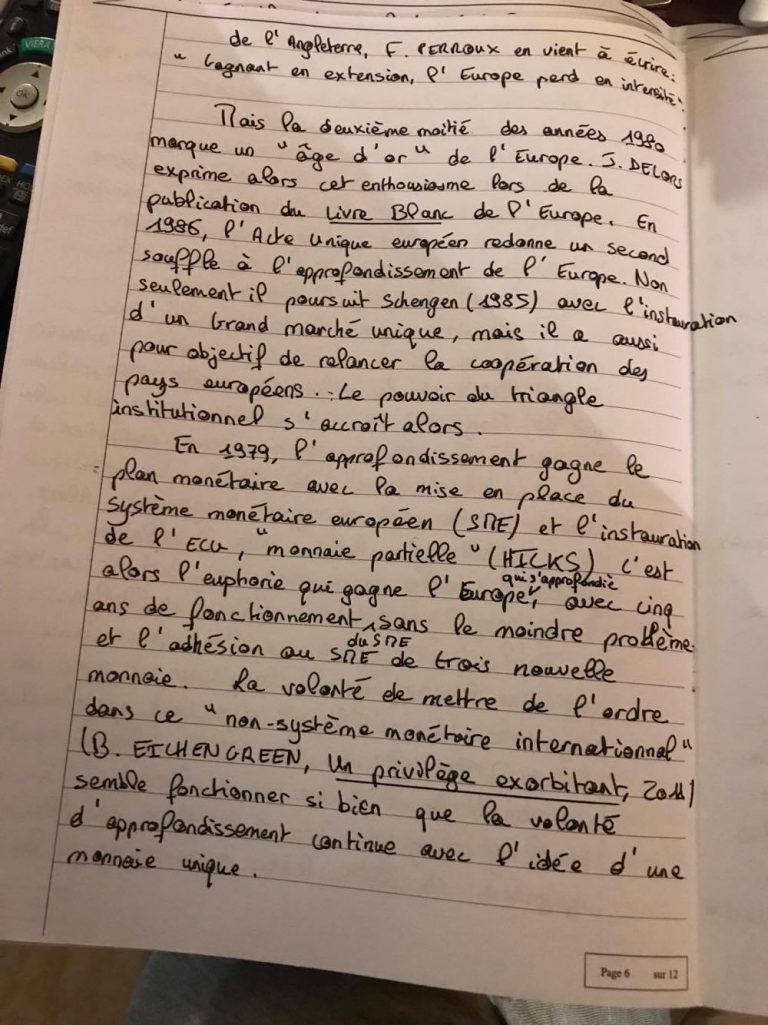 de l'Angleterre, F. PERROUX en vient à écrire :
" Gagnant en extension, l'Europe perd en intensité".
Mais la deuxième moitié des années 1980
marque un "âge d'or" de l'Europe. J. DELORS
exprime alors cet enthousiasme lors de la
publication du Livre Blanc de l'Europe. En
1986, l'Acte Unique européen redonne un second
souffle à l'approfondissement de l'Europe. Non
seulement il poursuit Schengen (1985) avec l'instauration
d'un Grand marché unique, mais il a aussi
pour objectif de relancer la coopération des
pays européens. : Le pouvoir du triangle
institutionnel s'accroît alors.
En 1979, l'approfondissement gagne le
plan monétaire avec la mise en place du
système monétaire européen (SME) et l'instauration
de l'ECU, "monnaie partielle" (HICKS). C'est
alors l'euphorie qui gagne l'Europe, qui s'approfondie avec cinq
ans de fonctionnement du SME, sans le moindre problème
et l'adhésion au SME de trois nouvelle
monnaie. La volonté de mettre de l'ordre
dans ce "non-système monétaire internationnel"
(B. EICHENGREEN, Un privilège exorbitant, 2011)
semble fonctionner si bien que la volonté
d'approfondissement continue avec l'idée d'une
monnaie unique.
Page 6 sur 12
VIERA
OK
def